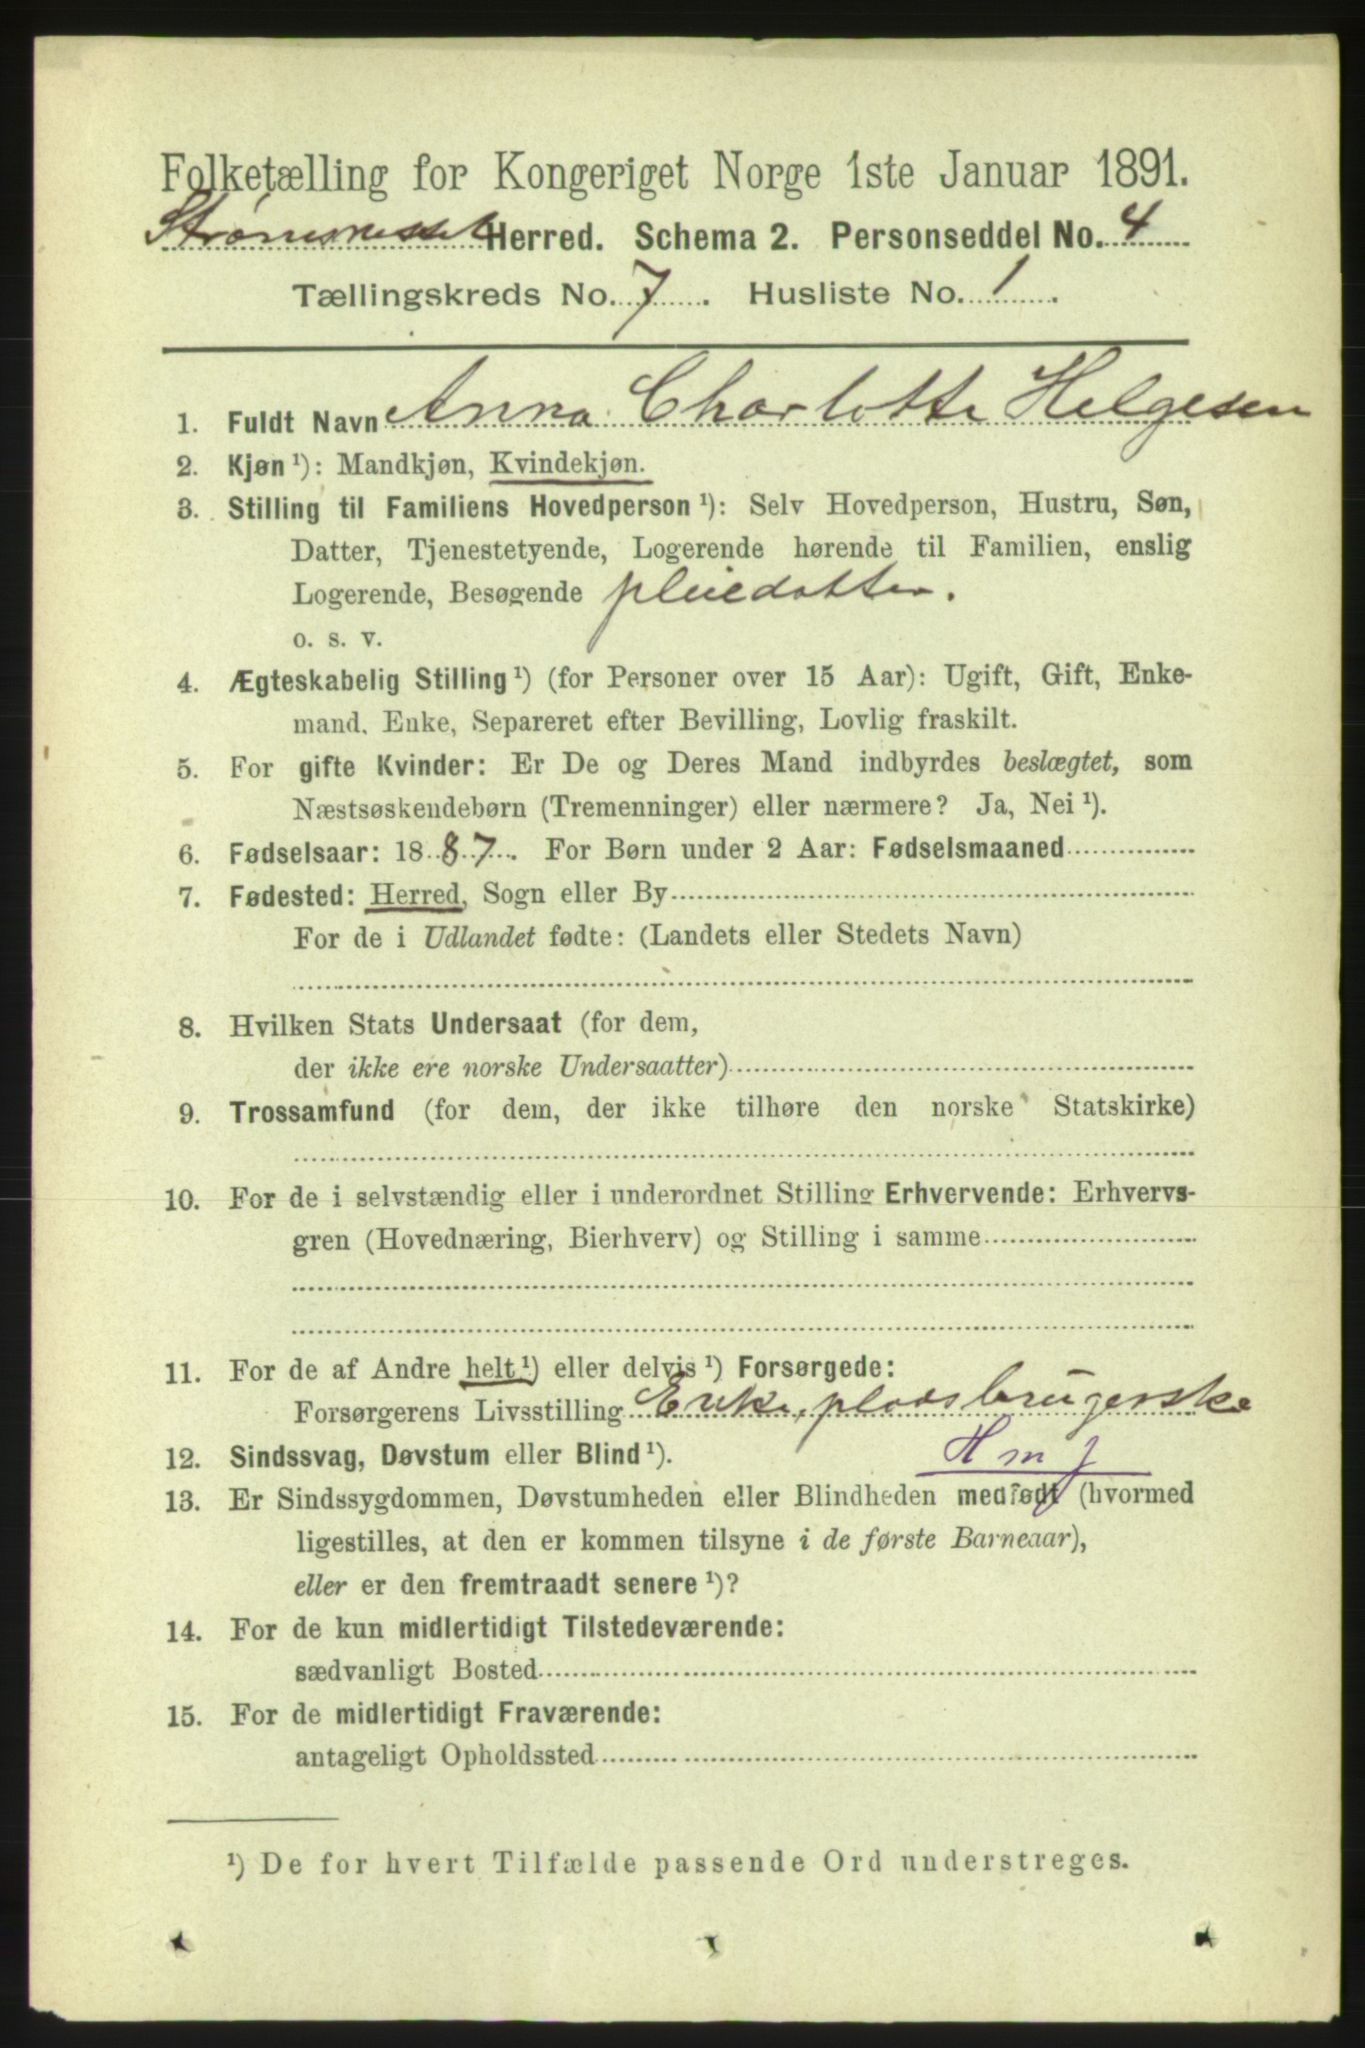 Folketælling for Kongeriget Norge 1ste Januar 1891.
Strømmesset Herred. Schema 2. Personseddel No. 4
Tællingskreds No. 7. Husliste No. 1.
1. Fuldt Navn Anna Charlotte Helgesen
2. Kjøn ¹): Mandkjøn, Kvindekjøn.
3. Stilling til Familiens Hovedperson ¹): Selv Hovedperson, Hustru, Søn,
Datter, Tjenestetyende, Logerende hørende til Familien, enslig
Logerende, Besøgende pleiedatter.
o. s. v.
4. Ægteskabelig Stilling ¹) (for Personer over 15 Aar): Ugift, Gift, Enke-
mand, Enke, Separeret efter Bevilling, Lovlig fraskilt.
5. For gifte Kvinder: Er De og Deres Mand indbyrdes beslægtet, som
Næstsøskendebørn (Tremenninger) eller nærmere? Ja, Nei ¹).
6. Fødselsaar: 1887. For Børn under 2 Aar: Fødselsmaaned
7. Fødested: Herred, Sogn eller By
For de i Udlandet fødte: (Landets eller Stedets Navn)
8. Hvilken Stats Undersaat (for dem,
der ikke ere norske Undersaatter)
9. Trossamfund (for dem, der ikke tilhøre den norske Statskirke)
10. For de i selvstændig eller i underordnet Stilling Erhvervende: Erhvervs-
gren (Hovednæring, Bierhverv) og Stilling i samme
11. For de af Andre helt ¹) eller delvis ¹) Forsørgede:
Forsørgerens Livsstilling Enke, pladsbrugerske
12. Sindssvag, Døvstum eller Blind ¹). H m j
13. Er Sindssygdommen, Døvstumheden eller Blindheden medfødt (hvormed
ligestilles, at den er kommen tilsyne i de første Barneaar),
eller er den fremtraadt senere ¹)?
14. For de kun midlertidigt Tilstedeværende:
sædvanligt Bosted
15. For de midlertidigt Fraværende:
antageligt Opholdssted
¹) De for hvert Tilfælde passende Ord understreges.